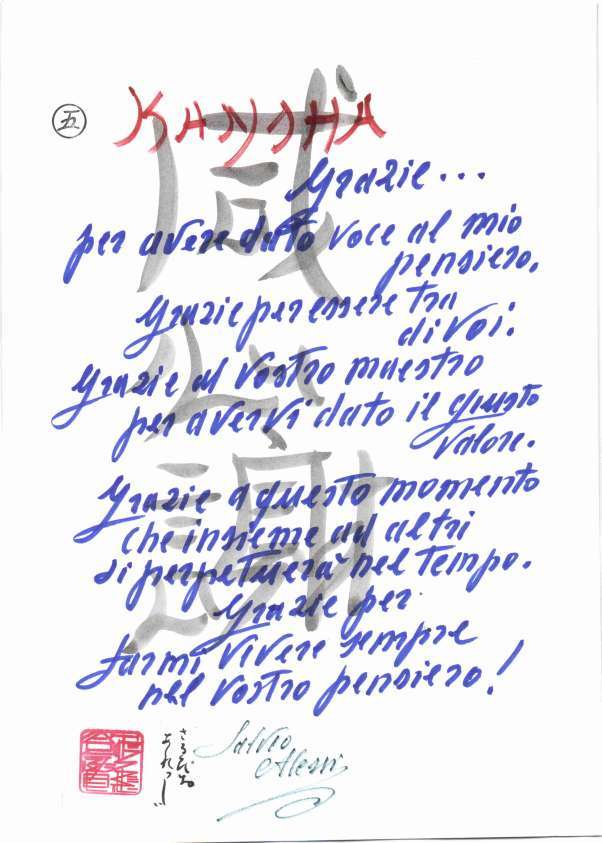 五
KANSHA
感謝
Grazie...
per avere dato voce al mio
pensiero.
Grazie per essere tra
di voi.
Grazie al vostro maestro
per avervi dato il giusto
valore.
Grazie a questo momento
che insieme ad altri
si perpetuerà nel tempo.
Grazie per
farmi vivere sempre
nel vostro pensiero!
Salvio
Alessi